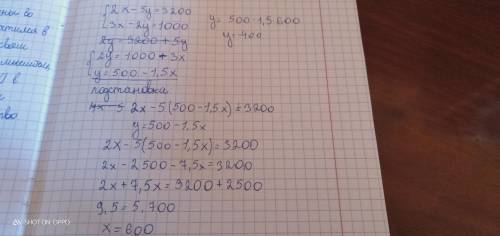 ны во
ратился в
своем
В
тво
{2x - 5y = 3200
{3x - 2y = 1000
2y = 3200 + 5y
{2y = 1000 + 3x
{y = 500 - 1,5x
подстановка
4x - 5 2x - 5(500 - 1,5x) = 3200
y = 500 - 1,5x
2x - 5(500 - 1,5x) = 3200
2x - 2500 - 7,5x = 3200
2x + 7,5x = 3200 + 2500
9,5 = 5.700
x = 600
y = 500 - 1,5.600
y = 400
SHOT ON OPPO